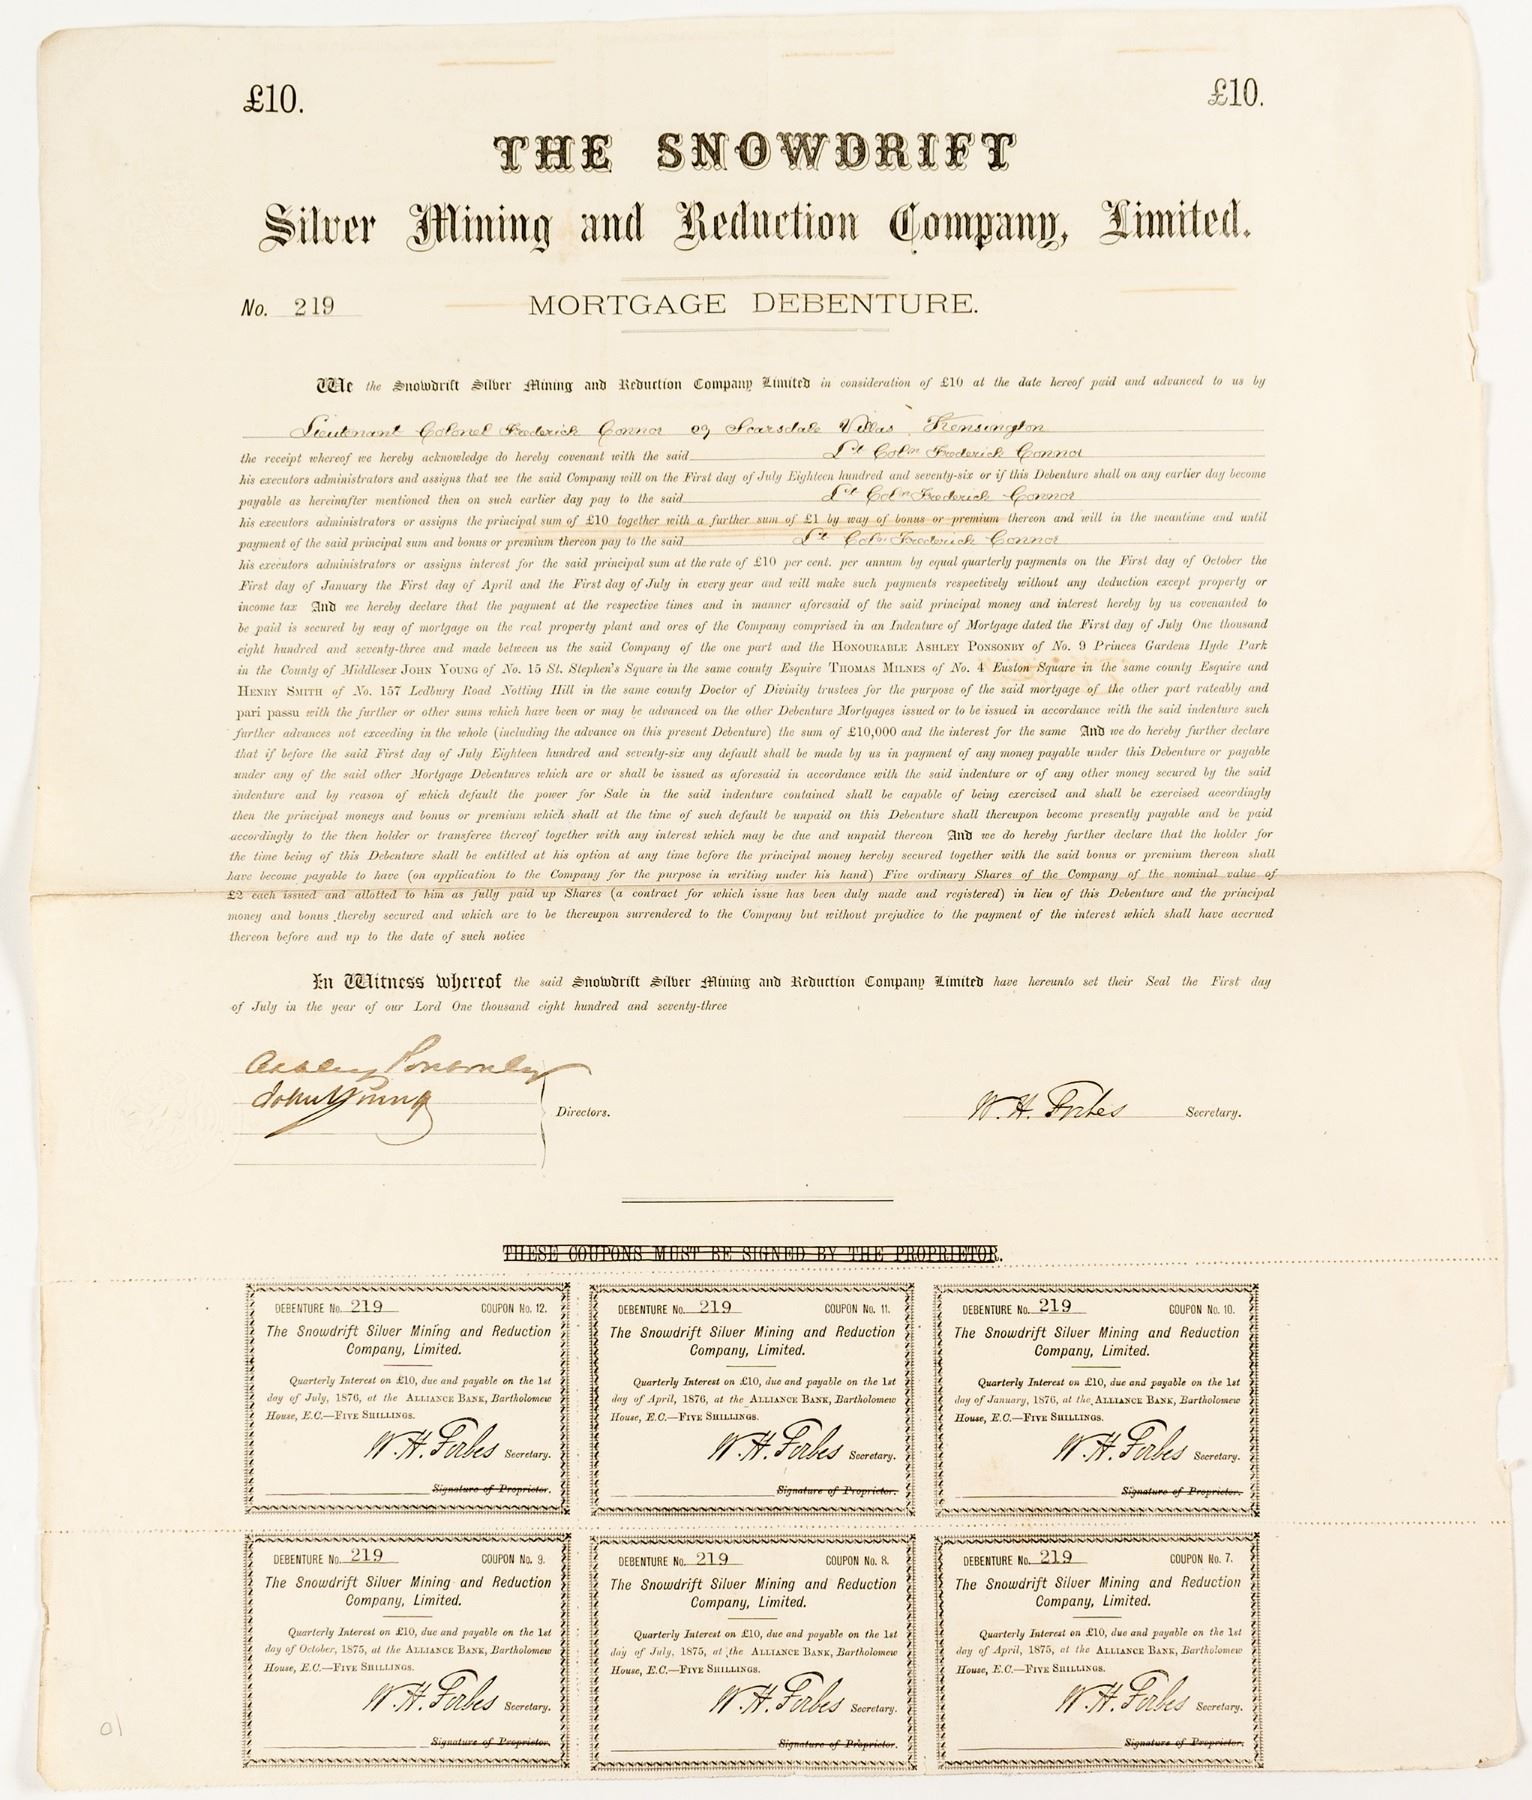 £10. £10.
THE SNOWDRIFT
Silver Mining and Reduction Company, Limited.
No. 219 MORTGAGE DEBENTURE.
We the Snowdrift Silver Mining and Reduction Company Limited in consideration of £10 at the date hereof paid and advanced to us by
Lieutenant Colonel Frederick Connor Scarsdale Villas Kensington
the receipt whereof we hereby acknowledge do hereby covenant with the said Lt Coln Frederick Connor
his executors administrators and assigns that we the said Company will on the First day of July Eighteen hundred and seventy-six or if this Debenture shall on any earlier day become
payable as hereinafter mentioned then on such earlier day pay to the said Lt Coln Frederick Connor
his executors administrators or assigns the principal sum of £10 together with a further sum of £1 by way of bonus or premium thereon and will in the meantime and until
payment of the said principal sum and bonus or premium thereon pay to the said Lt Coln Frederick Connor
his executors administrators or assigns interest for the said principal sum at the rate of £10 per cent. per annum by equal quarterly payments on the First day of October the
First day of January the First day of April and the First day of July in every year and will make such payments respectively without any deduction except property or
income tax And we hereby declare that the payment at the respective times and in manner aforesaid of the said principal money and interest hereby by us covenanted to
be paid is secured by way of mortgage on the real property plant and ores of the Company comprised in an Indenture of Mortgage dated the First day of July One thousand
eight hundred and seventy-three and made between us the said Company of the one part and the HONOURABLE ASHLEY PONSONBY of No. 9 Princes Gardens Hyde Park
in the County of Middlesex JOHN YOUNG of No. 15 St. Stephen's Square in the same county Esquire THOMAS MILNES of No. 4 Euston Square in the same county Esquire and
HENRY SMITH of No. 157 Ledbury Road Notting Hill in the same county Doctor of Divinity trustees for the purpose of the said mortgage of the other part rateably and
pari passu with the further or other sums which have been or may be advanced on the other Debenture Mortgages issued or to be issued in accordance with the said indenture such
further advances not exceeding in the whole (including the advance on this present Debenture) the sum of £10,000 and the interest for the same And we do hereby further declare
that if before the said First day of July Eighteen hundred and seventy-six any default shall be made by us in payment of any money payable under this Debenture or payable
under any of the said other Mortgage Debentures which are or shall be issued as aforesaid in accordance with the said indenture or of any other money secured by the said
indenture and by reason of which default the power for Sale in the said indenture contained shall be capable of being exercised and shall be exercised accordingly
then the principal moneys and bonus or premium which shall at the time of such default be unpaid on this Debenture shall thereupon become presently payable and be paid
accordingly to the then holder or transferee thereof together with any interest which may be due and unpaid thereon And we do hereby further declare that the holder for
the time being of this Debenture shall be entitled at his option at any time before the principal money hereby secured together with the said bonus or premium thereon shall
have become payable to have (on application to the Company for the purpose in writing under his hand) Five ordinary Shares of the Company of the nominal value of
£2 each issued and allotted to him as fully paid up Shares (a contract for which issue has been duly made and registered) in lieu of this Debenture and the principal
money and bonus thereby secured and which are to be thereupon surrendered to the Company but without prejudice to the payment of the interest which shall have accrued
thereon before and up to the date of such notice
In Witness whereof the said Snowdrift Silver Mining and Reduction Company Limited have hereunto set their Seal the First day
of July in the year of our Lord One thousand eight hundred and seventy-three
Ashley Ponsonby
John Young
Directors. W. H. Forbes Secretary.
THESE COUPONS MUST BE SIGNED BY THE PROPRIETOR.
DEBENTURE No. 219 COUPON No. 12.
The Snowdrift Silver Mining and Reduction
Company, Limited.
Quarterly Interest on £10, due and payable on the 1st
day of July, 1876, at the ALLIANCE BANK, Bartholomew
House, E.C.—FIVE SHILLINGS.
W. H. Forbes Secretary.
Signature of Proprietor.
DEBENTURE No. 219 COUPON No. 11.
The Snowdrift Silver Mining and Reduction
Company, Limited.
Quarterly Interest on £10, due and payable on the 1st
day of April, 1876, at the ALLIANCE BANK, Bartholomew
House, E.C.—FIVE SHILLINGS.
W. H. Forbes Secretary.
Signature of Proprietor.
DEBENTURE No. 219 COUPON No. 10.
The Snowdrift Silver Mining and Reduction
Company, Limited.
Quarterly Interest on £10, due and payable on the 1st
day of January, 1876, at the ALLIANCE BANK, Bartholomew
House, E.C.—FIVE SHILLINGS.
W. H. Forbes Secretary.
Signature of Proprietor.
DEBENTURE No. 219 COUPON No. 9.
The Snowdrift Silver Mining and Reduction
Company, Limited.
Quarterly Interest on £10, due and payable on the 1st
day of October, 1875, at the ALLIANCE BANK, Bartholomew
House, E.C.—FIVE SHILLINGS.
W. H. Forbes Secretary.
Signature of Proprietor.
DEBENTURE No. 219 COUPON No. 8.
The Snowdrift Silver Mining and Reduction
Company, Limited.
Quarterly Interest on £10, due and payable on the 1st
day of July, 1875, at the ALLIANCE BANK, Bartholomew
House, E.C.—FIVE SHILLINGS.
W. H. Forbes Secretary.
Signature of Proprietor.
DEBENTURE No. 219 COUPON No. 7.
The Snowdrift Silver Mining and Reduction
Company, Limited.
Quarterly Interest on £10, due and payable on the 1st
day of April, 1875, at the ALLIANCE BANK, Bartholomew
House, E.C.—FIVE SHILLINGS.
W. H. Forbes Secretary.
Signature of Proprietor.